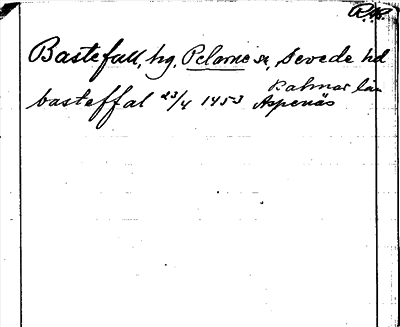 R.A.
Bastefall, hg, Pelarne sn, Sevede hd
Kalmar län
basteffal 23/4 1453 Aspenäs